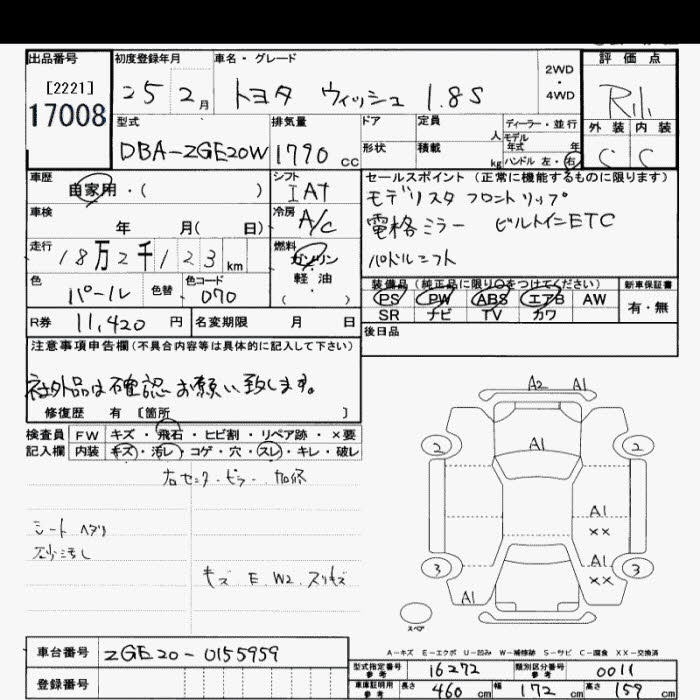 出品番号 初度登録年月 車名・グレード 2WD・4WD 評価点
[2221]
17008
25 2月 トヨタ ウィッシュ 1.8S
型式 排気量 ドア 定員 人 ディーラー・並行
モデル年式 年
外装 内装
DBA-ZGE20W 1790 cc 形状 積載 kg ハンドル 左・右
C C
車歴 自家用・( ) シフト IAT
セールスポイント (正常に機能するものに限ります)
モデリスタ フロントリップ
車検 年 月( 日) 冷房 A/C
電格ミラー ビルトインETC
走行 18万2千123km 燃料 ガソリン・軽油・( )
パドルシフト
色 パール 色替 色コード 070
装備品 (純正品に限り○をつけてください) 新車保証書
PS PW ABS エアB AW 有・無
SR ナビ TV カワ
R券 11,420 円 名変期限 月 日
後日品
注意事項申告欄(不具合内容等は具体的に記入して下さい)
社外品は確認お願い致します。
修復歴 有 〔箇所 〕
検査員 FW キズ・飛石・ヒビ割・リペア跡・×要
記入欄 内装 キズ・汚レ・コゲ・穴・スレ・キレ・破レ
右センターピラー 加修
シートヘタリ
キズ E W2 スリキズ
A2 A1
2 A1 2
A1
××
3 A1 3
××
A1
スペア
A-キズ E-エクボ U-凹み W-補修跡 S-サビ C-腐食 XX-交換済
車台番号 ZGE20-0155959
型式指定番号 参考 16272 類別区分番号 参考 0011
登録番号
車庫証明用 参考 長さ 460 cm 幅 172 cm 高さ 159 cm